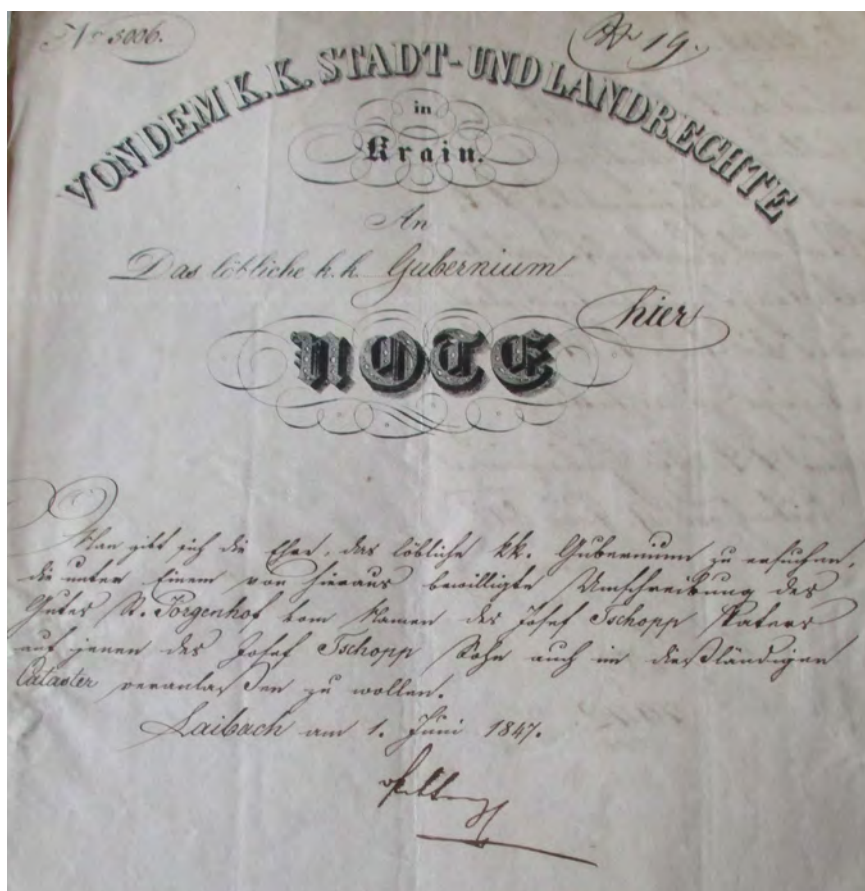 No 5006.
19.
VON DEM K.K. STADT- UND LANDRECHTE
in
Krain.
An
Das löbliche k.k. Gubernium
hier
NOTE
Man gibt sich die Ehre, das löbliche kk. Gubernium zu ersuchen,
die unter Einem von hieraus bewilligte Umschreibung des
Gutes St. Jörgenhof vom Namen des Josef Tschopp Vaters
auf jenen des Josef Tschopp Sohn auch im dießländigen
Cataster veranlaßen zu wollen.
Laibach am 1. Juni 1847.